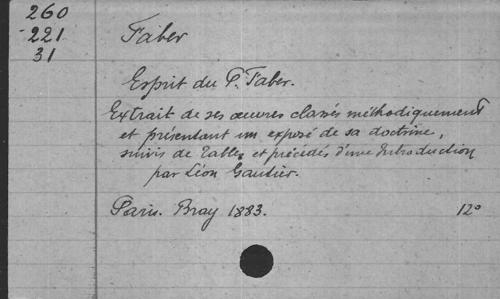 260
221
31
Faber
Esprit du P. Faber.
Extrait de ses œuvres classés méthodiquement
et présentant un exposé de sa doctrine,
suivis de Tables et précédés d'une Introduction
par Léon Gautier.
Paris. Bray 1883. 12°